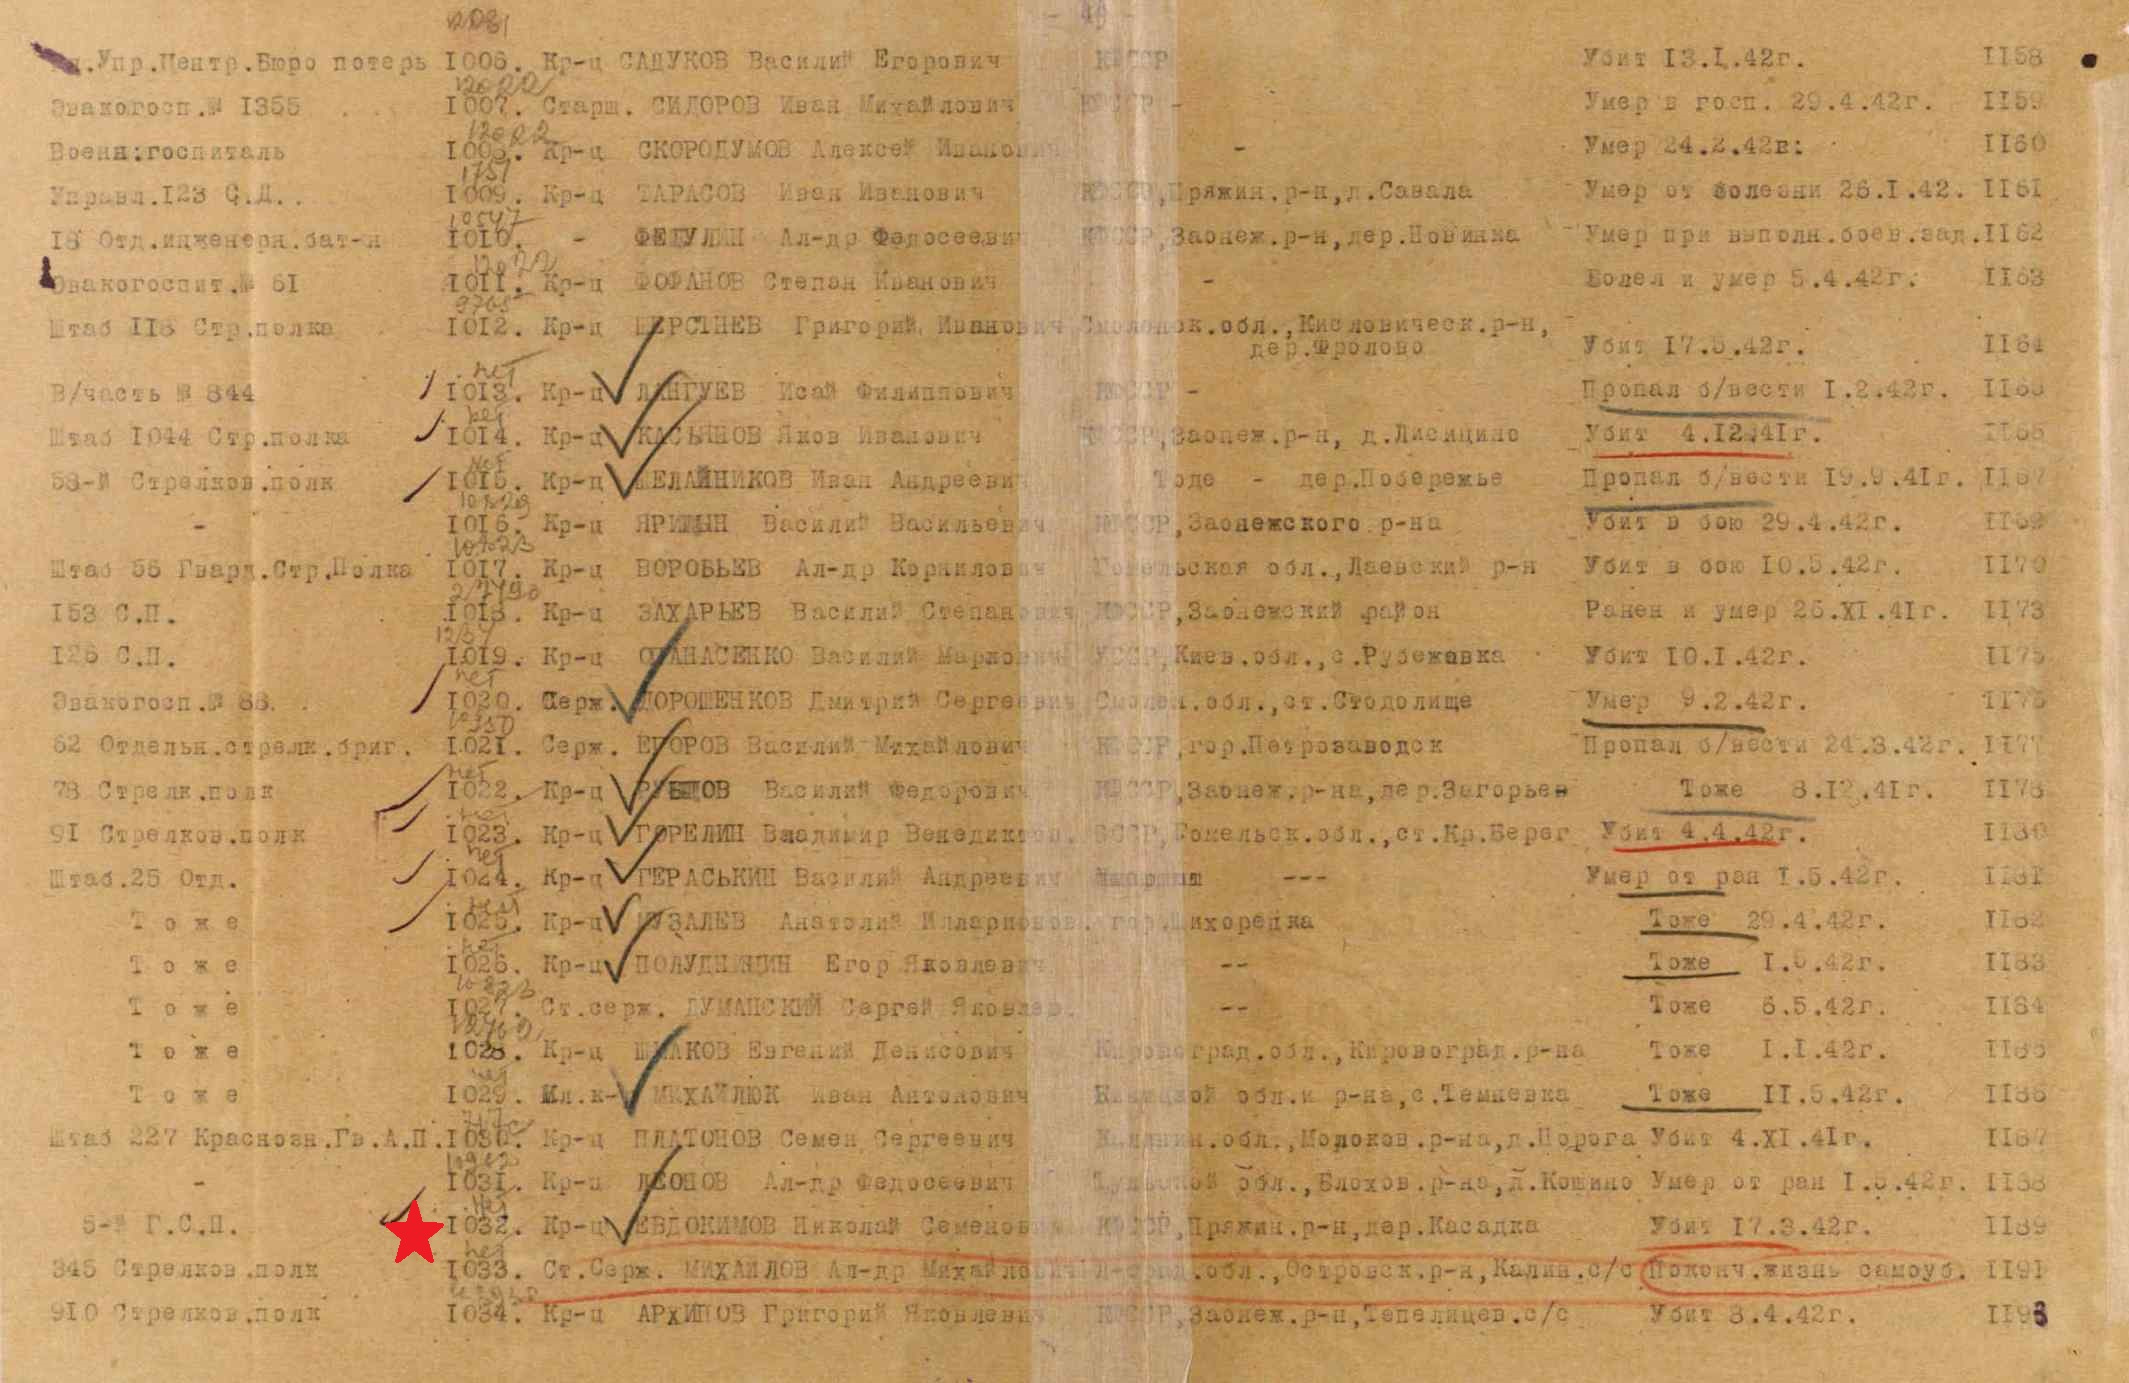 - 46 -
12081
Упр.Центр.Бюро потерь 1006. Кр-ц САДУКОВ Василий Егорович КФССР Убит 13.I.42г. II58
12022
Эвакогосп.№ 1355 1007. Старш. СИДОРОВ Иван Михайлович КФССР - Умер в госп. 29.4.42г. II59
12022
Военн:госпиталь 1008. Кр-ц СКОРОДУМОВ Алексей Иванович - Умер 24.2.42г: II60
1751
Управл.123 С.Д.. 1009. Кр-ц ТАРАСОВ Иван Иванович КФССР,Пряжин.р-н,д.Савала Умер от болезни 26.I.42. II61
10547
18 Отд.инженерн.бат-н 1010. - ФЕДУЛИН Ал-др Федосеевич КФССР,Заонеж.р-н,дер.Новинка Умер при выполн.боев.зад. II62
12022
Эвакогоспит.№ 61 1011. Кр-ц ФОФАНОВ Степан Иванович - Болел и умер 5.4.42г. II63
9765
Штаб 118 Стр.полка 1012. Кр-ц ШЕРСТНЕВ Григорий Иванович Смоленск.обл.,Кисловическ.р-н,
дер.Фролово Убит 17.5.42г. II64
нет
В/часть № 844 1013. Кр-ц ЛАНГУЕВ Исай Филиппович КФССР - Пропал б/вести I.2.42г. II65
нет
Штаб 1044 Стр.полка 1014. Кр-ц КАСЬЯНОВ Яков Иванович КФССР,Заонеж.р-н, д.Лисицино Убит 4.12.41г. II66
нет
58-й Стрелков.полк 1015. Кр-ц ШЕЛАЙНИКОВ Иван Андреевич Тоде - дер.Побережье Пропал б/вести 19.9.41г. II67
10829
- 1016. Кр-ц Василий Васильевич КФССР,Заонежского р-на Убит в бою 29.4.42г. II69
Штаб 55 Гвард.Стр.Полка 1017. Кр-ц ВОРОБЬЕВ Ал-др Корнилович обл.,Лаевский р-н Убит в бою 10.5.42г. II70
153 С.П. 1018. Кр-ц ЗАХАРЬЕВ Василий Степанович КФССР,Заонежский район Ранен и умер 26.XI.41г. II73
126 С.П. 1019. Кр-ц ОПАНАСЕНКО Василий Маркович УССР,Киев.обл.,с.Рубежовка Убит 10.I.42г. II75
нет
Эвакогосп.№ 88. 1020. Серж. ДОРОШЕНКОВ Дмитрий Сергеевич Смолен.обл.,ст.Стодолище Умер 9.2.42г. II76
10350
62 Отдельн.стрелк.бриг. 1021. Серж. ЕГОРОВ Василий Михайлович КФССР,гор.Петрозаводск Пропал б/вести 24.3.42г. II77
нет
78 Стрелк.полк 1022. Кр-ц РУБЦОВ Василий Федорович КФССР,Заонеж.р-на,дер.Загорьев Тоже 8.12.41г. II78
нет
91 Стрелков.полк 1023. Кр-ц ГОРЕЛИН Владимир Венедиктов. БССР,Гомельск.обл.,ст.Кр.Берег Убит 4.4.42г. II80
нет
Штаб.25 Отд. 1024. Кр-ц ГЕРАСЬКИН Василий Андреевич --- Умер от ран I.5.42г. II81
нет
Тоже 1025. Кр-ц МУЗАЛЕВ Анатолий Илларионов. гор.Тихорецка Тоже 29.4.42г. II82
нет
Тоже 1026. Кр-ц Егор Яковлевич -- Тоже I.5.42г. II83
10823
Тоже 1027. Ст.серж. ДУМАНСКИЙ Сергей Яковлев. -- Тоже 6.5.42г. II84
Тоже 1028. Кр-ц Евгений Денисович Кировоград.обл.,Кировоград.р-на Тоже I.I.42г. II85
нет
Тоже 1029. Мл.к- МИХАЙЛЮК Иван Антонович обл.и р-на,с.Темневка Тоже II.5.42г. II86
Штаб 227 Краснозн.Гв.А.П. 1030. Кр-ц ПЛАТОНОВ Семен Сергеевич Калинин.обл.,Молоков.р-на,д.Порога Убит 4.XI.41г. II87
- 1031. Кр-ц ЛЕОНОВ Ал-др Федосеевич Тульской обл.,Блохов.р-на,д.Кошино Умер от ран I.5.42г. II88
Нет
5-й Г.С.П. 1032. Кр-ц ЕВДОКИМОВ Николай Семенович КФССР,Пряжин.р-н,дер.Касадка Убит 17.3.42г. II89
нет
345 Стрелков.полк 1033. Ст.Серж. МИХАЙЛОВ Ал-др Михайлович Л-град.обл.,Островск.р-н,Калин.с/с Поконч.жизнь самоуб. II91
910 Стрелков.полк 1034. Кр-ц АРХИПОВ Григорий Яковлевич КФССР,Заонеж.р-н,Тепелицев.с/с Убит 8.4.42г. II93